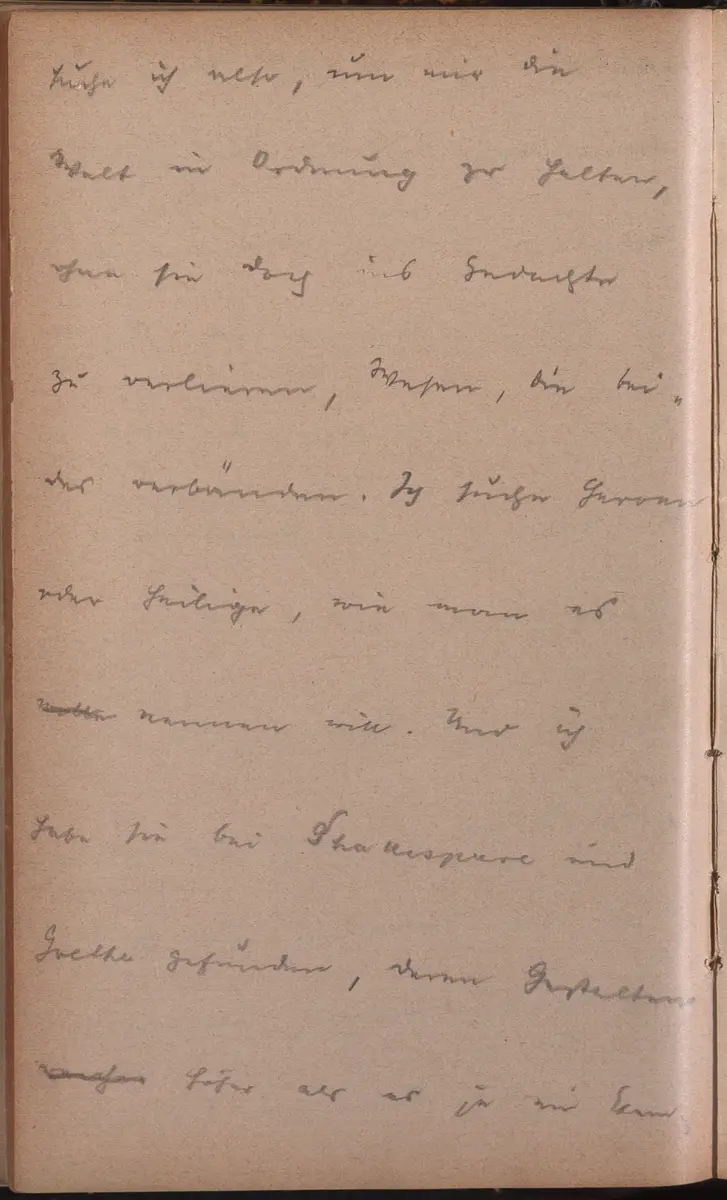 suche ich also, um mir die
Welt in Ordnung zu halten,
ohne sie doch ins Gedachte
zu verlieren, Wesen, die bei-
des verbänden. Ich suche Heroen
oder Heilige, wie man es
nennen will. Und ich
habe sie bei Shakespeare und
Goethe gefunden, deren Gestalten
höher als es je ein